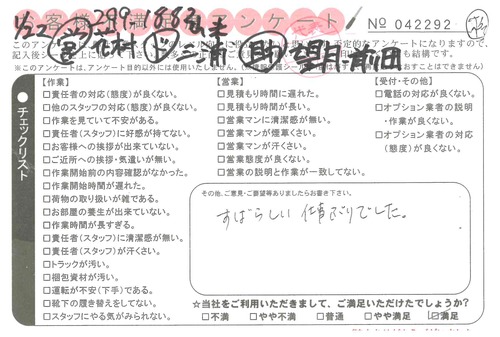 お客様満足アンケート
No 042292
1/22 299,188
営 花村 ド 三浦 助 望月・前田
チェックリスト
【作業】
□責任者の対応(態度)が良くない。
□他のスタッフの対応(態度)が良くない。
□作業を見ていて不安がある。
□責任者(スタッフ)に好感が持てない。
□お客様への挨拶が出来ていない。
□ご近所への挨拶・気遣いが無い。
□作業開始前の内容確認がなかった。
□作業開始時間が遅れた。
□荷物の取り扱いが雑である。
□お部屋の養生が出来ていない。
□作業時間が長すぎる。
□責任者(スタッフ)に清潔感が無い。
□責任者(スタッフ)が汗くさい。
□トラックが汚い。
□梱包資材が汚い。
□運転が不安(下手)である。
□靴下の履き替えをしてない。
□スタッフにやる気がみられない。
【営業】
□見積もり時間に遅れた。
□見積もり時間が長い。
□営業マンに清潔感が無い。
□営業マンが煙草くさい。
□営業マンが汗くさい。
□営業態度が良くない。
□営業の説明と作業が一致してない。
【受付・その他】
□電話の対応が良くない。
□オプション業者の説明
・作業が良くない。
□オプション業者の対応
(態度)が良くない。
その他、ご意見・ご要望等ありましたらお書き下さい。
すばらしい仕事ぶりでした。
☆当社をご利用いただきまして、ご満足いただけたでしょうか?
□不満 □やや不満 □普通 □やや満足 ☑満足